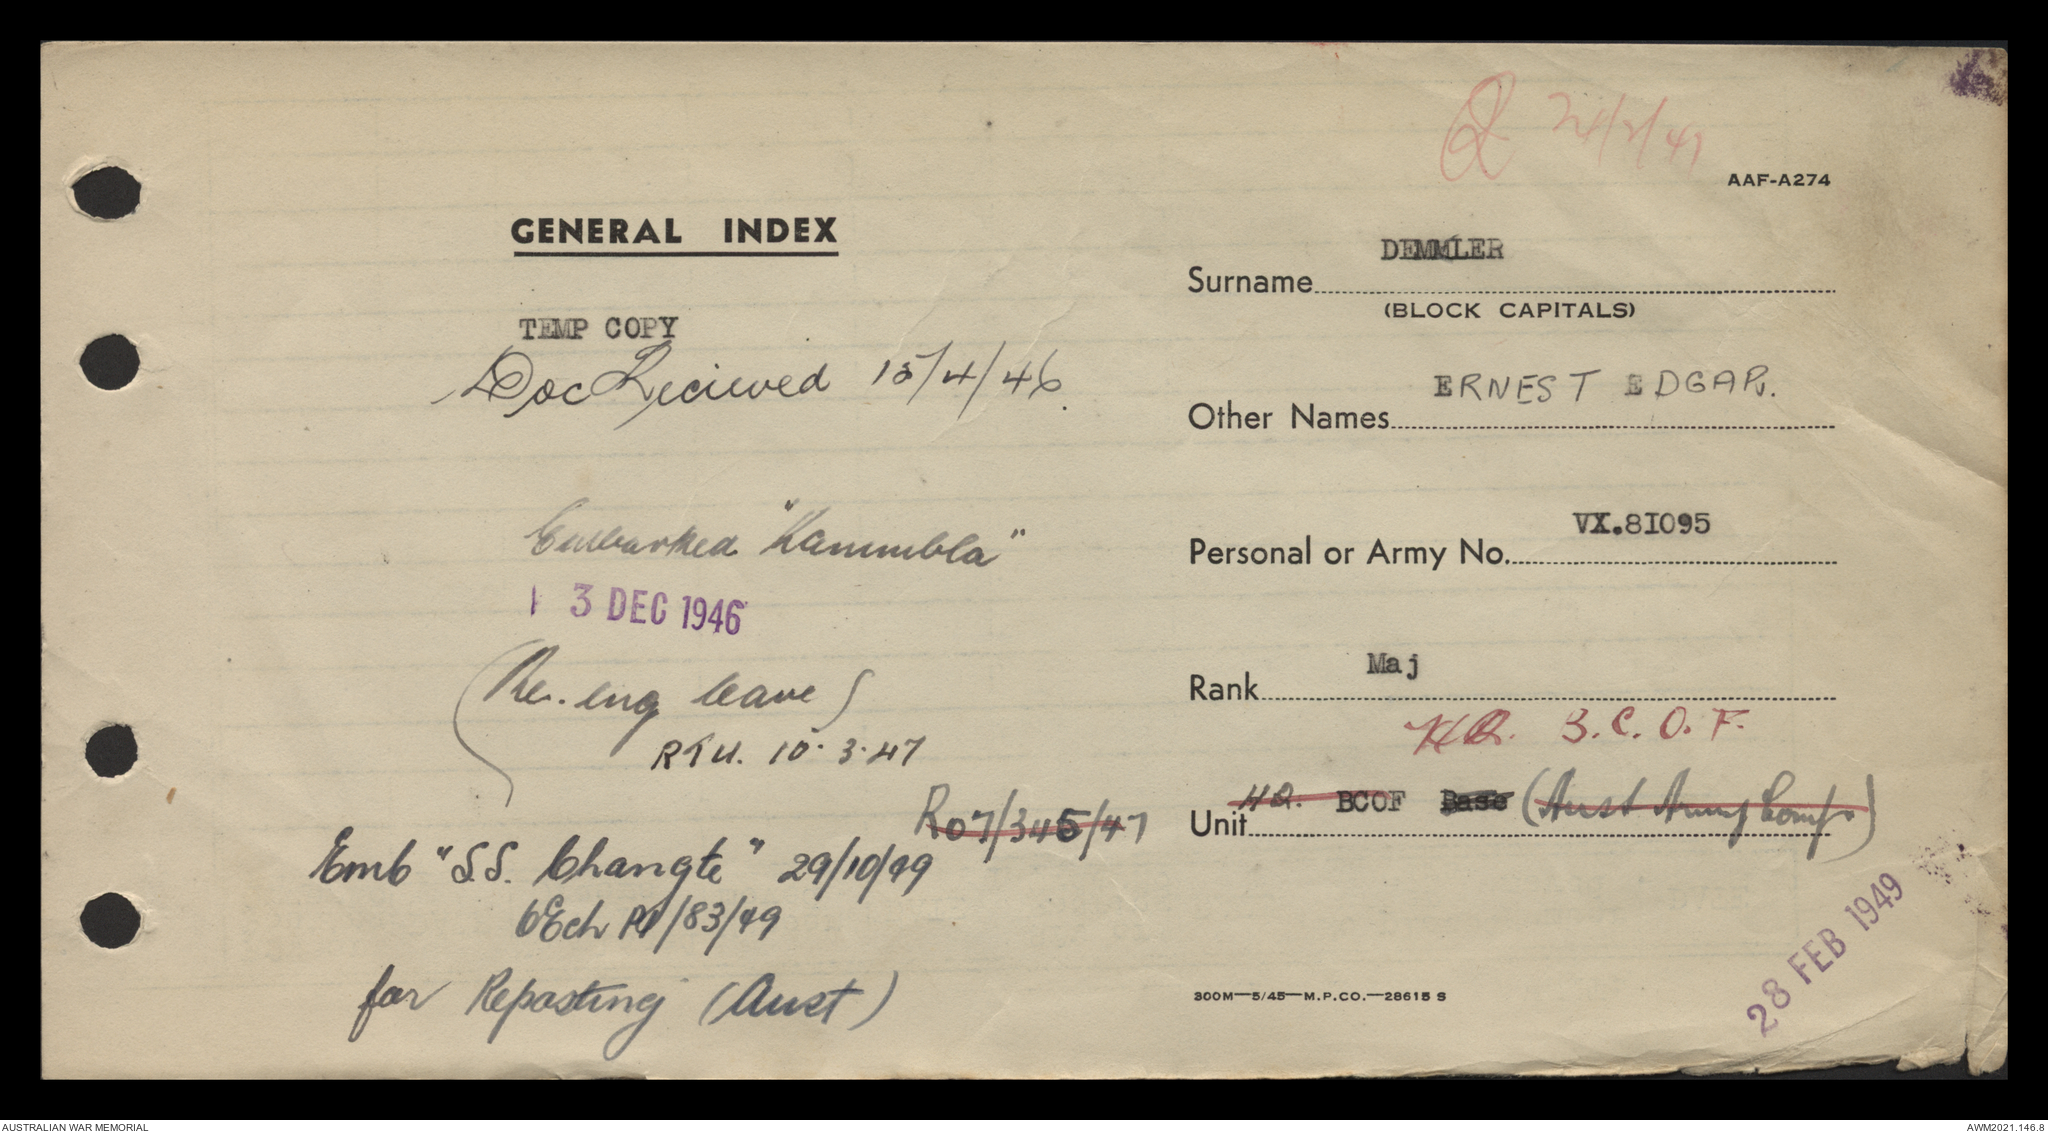 24/2/47
AAF-A274
GENERAL INDEX
TEMP COPY
Doc Recieved 15/4/46.
Embarked "Kanimbla"
3 DEC 1946
(Re. eng leave)
RTU. 10.3.47
R07/345/47
Emb "S.S. Changte" 29/10/49
6Ech /83/49
for Reposting (Aust)
Surname DEMMLER
(BLOCK CAPITALS)
Other Names ERNEST EDGAR.
Personal or Army No. VX.81095
Rank Maj
HQ. B.C.O.F.
Unit HQ. BCOF Base (Aust Army Comp)
28 FEB 1949
300M—5/45—M.P.CO.—28615 S
AUSTRALIAN WAR MEMORIAL
AWM2021.146.8